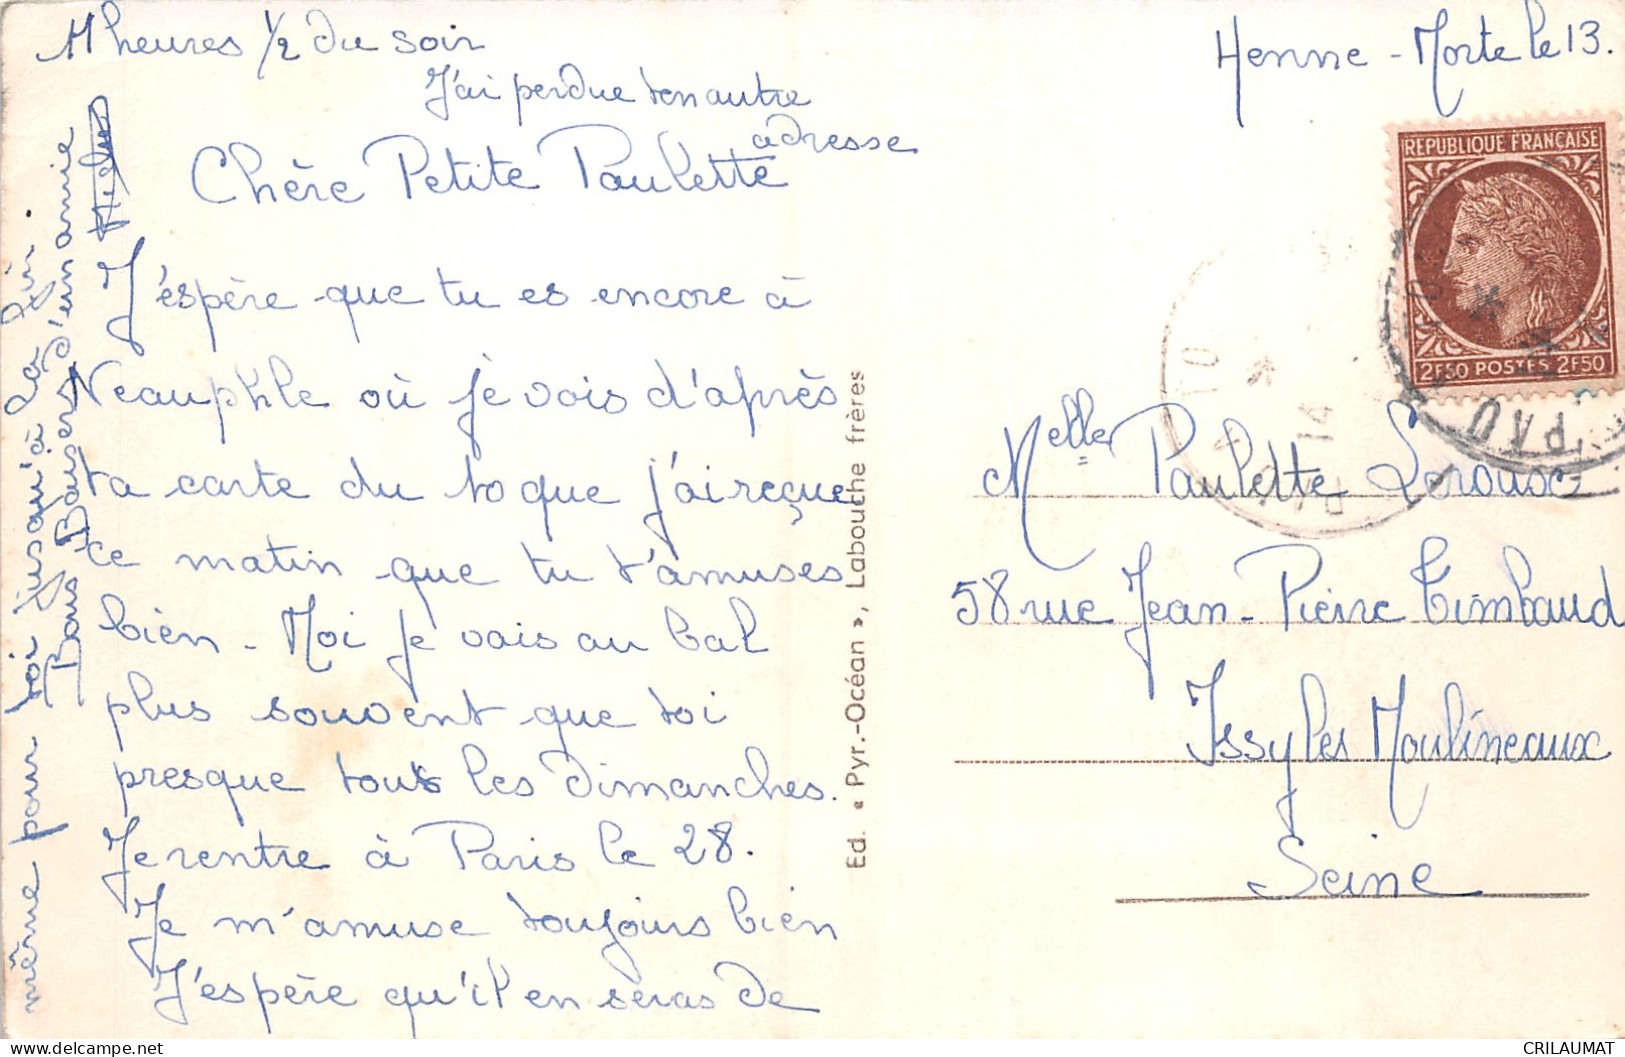 11 heures 1/2 du soir
J'ai perdue ton autre
adresse
Chère Petite Paulette
J'éspère que tu es encore à
Neauphle où je vois d'après
ta carte du toque j'ai reçue
ce matin que tu t'amuses
bien - Moi je vais au bal
plus souvent que toi
presque tous les dimanches.
Je rentre à Paris le 28.
Je m'amuse toujours bien
J'espère qu'il en seras de
même pour toi jusqu'à la fin.
Bons Baisers d'un amie
Ed. « Pyr.-Océan », Labouche frères
Henne - Morte le 13.
REPUBLIQUE FRANÇAISE
2F50 POSTES 2F50
PAU
Melle Paulette Leroux
58 rue Jean-Pierre Timbaud
Issy les Moulineaux
Seine
CRILAUMAT